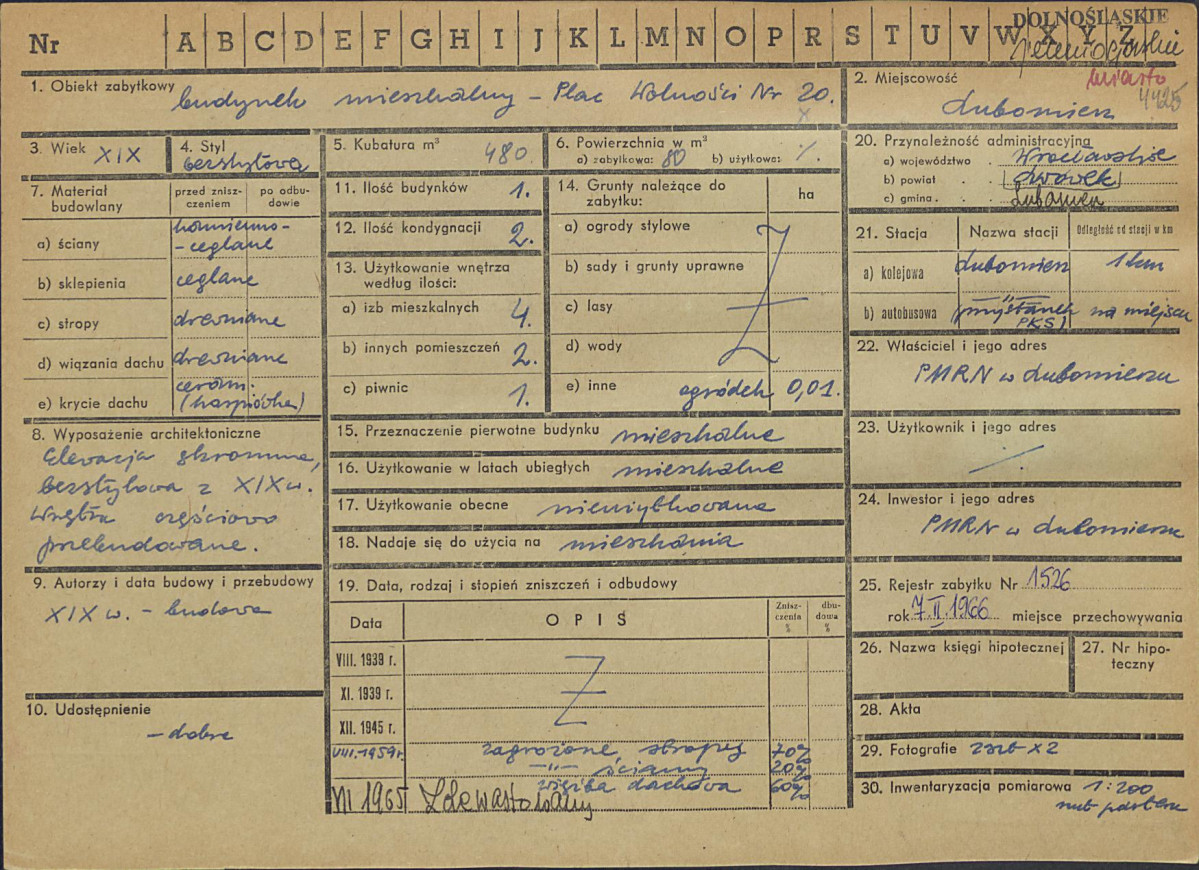 DOLNOŚLĄSKIE
Nr A B C D E F G H I J K L M N O P R S T U V W X Y Z
Jeleniogórskie
miasto
4425
1. Obiekt zabytkowy budynek mieszkalny – Plac Wolności Nr 20.
x
2. Miejscowość
Lubomierz
3. Wiek XIX
4. Styl
bezstylowa
5. Kubatura m³ 480
6. Powierzchnia w m²
a) zabytkowa: 80 b) użytkowa: ·/.
7. Materiał budowlany
przed zniszczeniem
po odbudowie
a) ściany kamienno-
-ceglane
b) sklepienia ceglane
c) stropy drewniane
d) wiązania dachu drewniane
e) krycie dachu ceram.
(karpiówka)
8. Wyposażenie architektoniczne
Elewacja skromna,
bezstylowa z XIX w.
Wnętrza częściowo
przebudowane.
9. Autorzy i data budowy i przebudowy
XIX w. – budowa
10. Udostępnienie
– dobre
11. Ilość budynków 1.
12. Ilość kondygnacji 2.
13. Użytkowanie wnętrza
według ilości:
a) izb mieszkalnych 4.
b) innych pomieszczeń 2.
c) piwnic 1.
14. Grunty należące do
zabytku:
ha
a) ogrody stylowe
b) sady i grunty uprawne
c) lasy
d) wody
e) inne ogródek 0,01.
15. Przeznaczenie pierwotne budynku mieszkalne
16. Użytkowanie w latach ubiegłych mieszkalne
17. Użytkowanie obecne nieużytkowane
18. Nadaje się do użycia na mieszkania
19. Data, rodzaj i stopień zniszczeń i odbudowy
Data
OPIS
Zniszczenia %
dbudowa %
VIII. 1939 r.
XI. 1939 r.
XII. 1945 r.
VIII.1959 r. zagrożone stropy 70%
–„– ściany 20%
więźba dachowa 60%
VII 1965 Zdewastowany
20. Przynależność administracyjna
a) województwo Wrocławskie
b) powiat (Lwówek)
c) gmina Lubomierz
21. Stacja
Nazwa stacji
Odległość od stacji w km
a) kolejowa Lubomierz 1 km
b) autobusowa –„–
(przystanek PKS) na miejscu
22. Właściciel i jego adres
PMRN w Lubomierzu
23. Użytkownik i jego adres
·/.
24. Inwestor i jego adres
PMRN w Lubomierzu
25. Rejestr zabytku Nr 1526
rok 7.II.1966 miejsce przechowywania
26. Nazwa księgi hipotecznej
27. Nr hipoteczny
28. Akta
29. Fotografie 2 szt x 2
30. Inwentaryzacja pomiarowa 1:200
rzut parteru